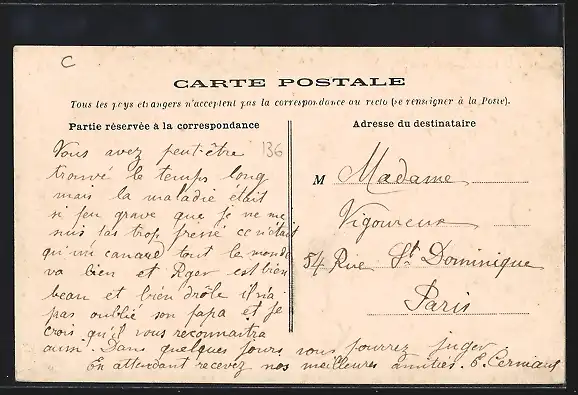 C
CARTE POSTALE
Tous les pays etrangers n'acceptent pas la correspondance au recto (se renseigner à la Poste).
Partie réservée à la correspondance
Adresse du destinataire
Vous avez peut-être
136
trouvé le temps long
mais la maladie était
si peu grave que je ne me
suis pas trop pressé ce n'était
qu'un canard tout le monde
va bien et Roger est bien
beau et bien drôle il n'a
pas oublié son papa et je
crois qu'il vous reconnaitra
aussi. Dans quelques jours vous pourrez juger.
En attendant recevez nos meilleures amitiés. E.
M Madame
Vigoureux
54 Rue St Dominique
Paris